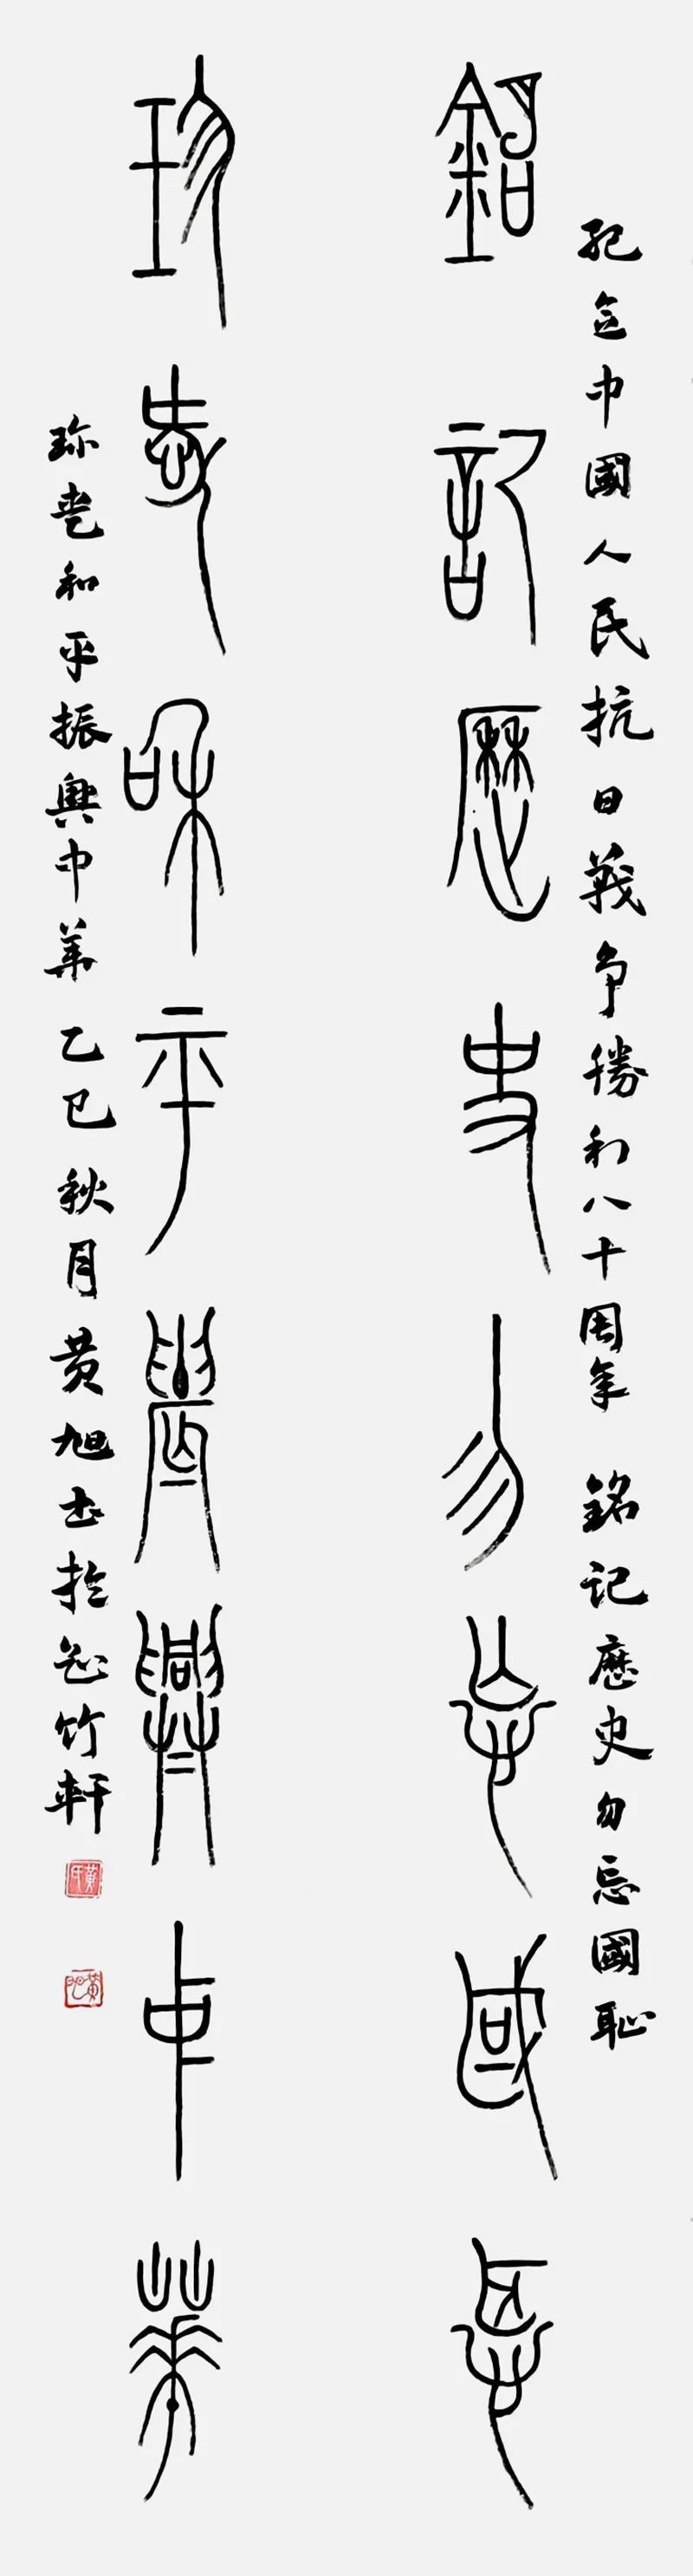 紀念中國人民抗日戰争勝利八十周年 銘記歷史勿忘國恥
銘記歷史勿忘國恥
珍愛和平振興中華
珍愛和平振興中華 乙巳秋月黄旭書於竹軒
黄氏